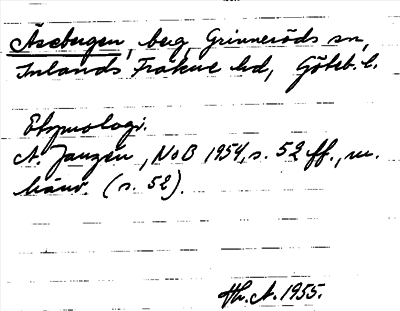 Åsebergen, berg, Grinneröds sn,
Inlands Fräkne hd, Göteb. l.
Etymologi.
A. Janzén, NoB 1954, s. 52 ff., m.
hänv. (s. 52).
Hr. A. 1955.